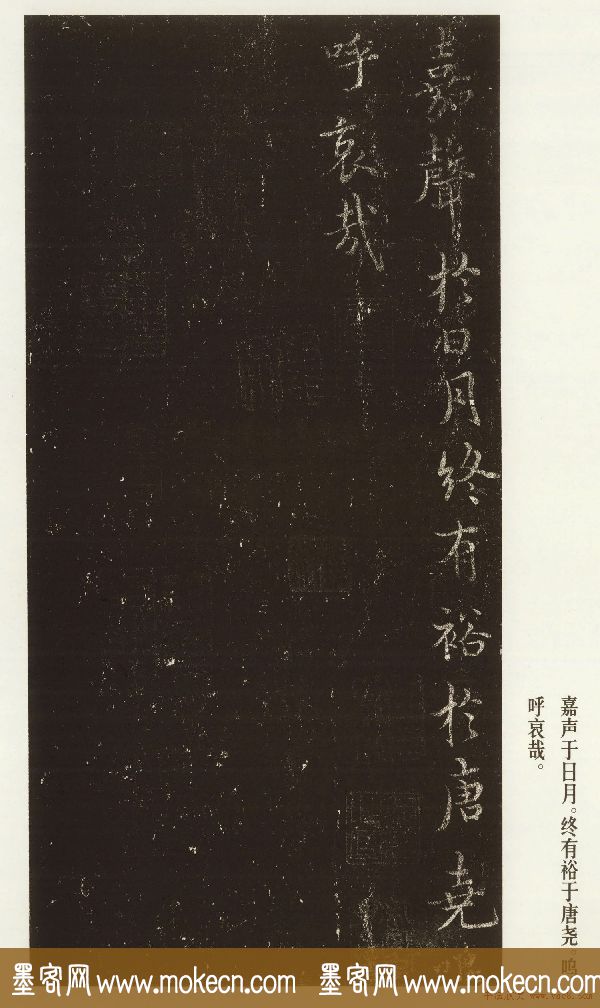 嘉聲於日月終有裕於唐堯嗚
呼哀哉
嘉声于日月。终有裕于唐尧。鸣
呼哀哉。
墨客网 www.mokecn.com 墨客网 www.mokecn.com